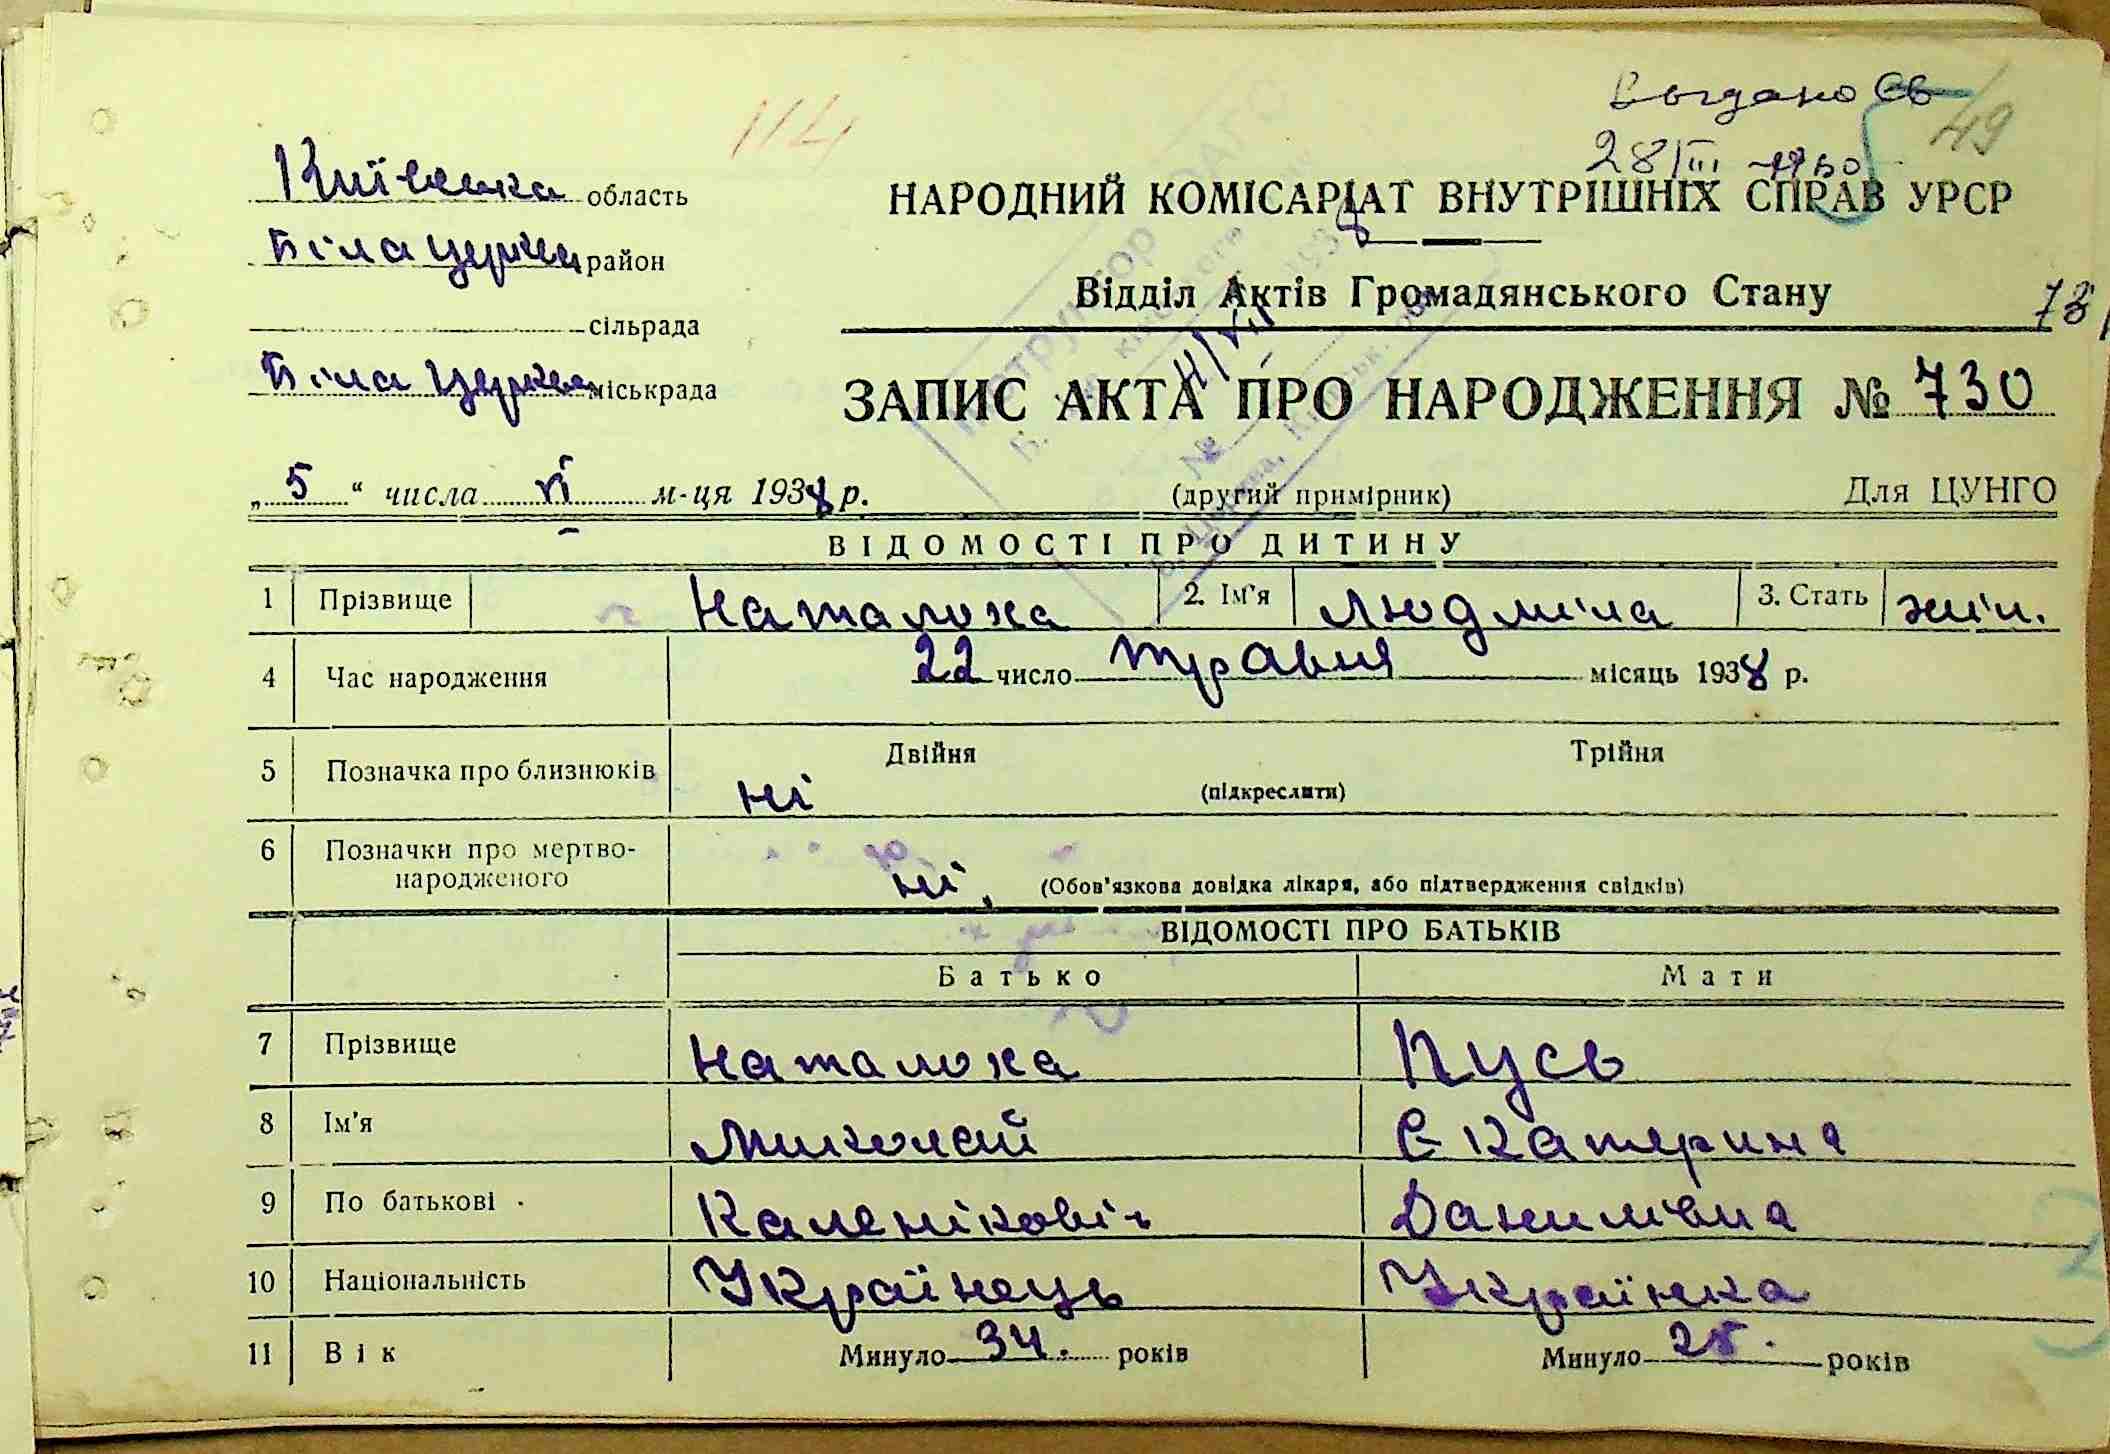 114
Выдано св
28/III
49
Київська область
НАРОДНИЙ КОМІСАРІАТ ВНУТРІШНІХ СПРАВ УРСР
Біла церква район
Відділ Актів Громадянського Стану
73
сільрада
Біла Церква міськрада
ЗАПИС АКТА ПРО НАРОДЖЕННЯ № 730
„5“ числа VI м-ця 1938 р. (другий примірник) Для ЦУНГО
ВІДОМОСТІ ПРО ДИТИНУ
1 Прізвище Наталоха 2. Ім'я Людміла 3. Стать жін.
4 Час народження 22 число травня місяць 1938 р.
5 Позначка про близнюків ні Двійня (підкреслити) Трійня
6 Позначки про мертво-
народженого ні, (Обов'язкова довідка лікаря, або підтвердження свідків)
ВІДОМОСТІ ПРО БАТЬКІВ
Батько Мати
7 Прізвище Наталоха Пусь
8 Ім'я Миколай Екатерина
9 По батькові Каленікович Данилівна
10 Національність Українець Українка
11 Вік Минуло 34. років Минуло 25. років